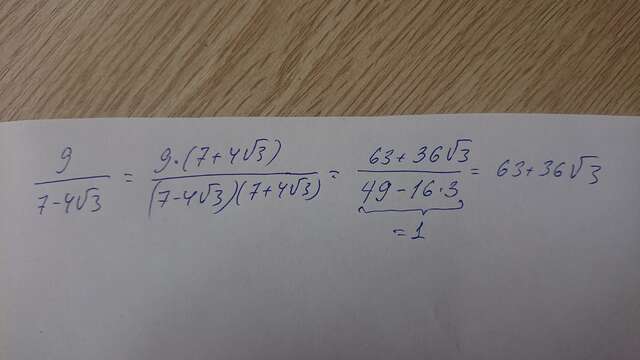 9/(7-4√3) = 9·(7+4√3)/((7-4√3)(7+4√3)) = (63+36√3)/(49-16·3) = 63+36√3
=1